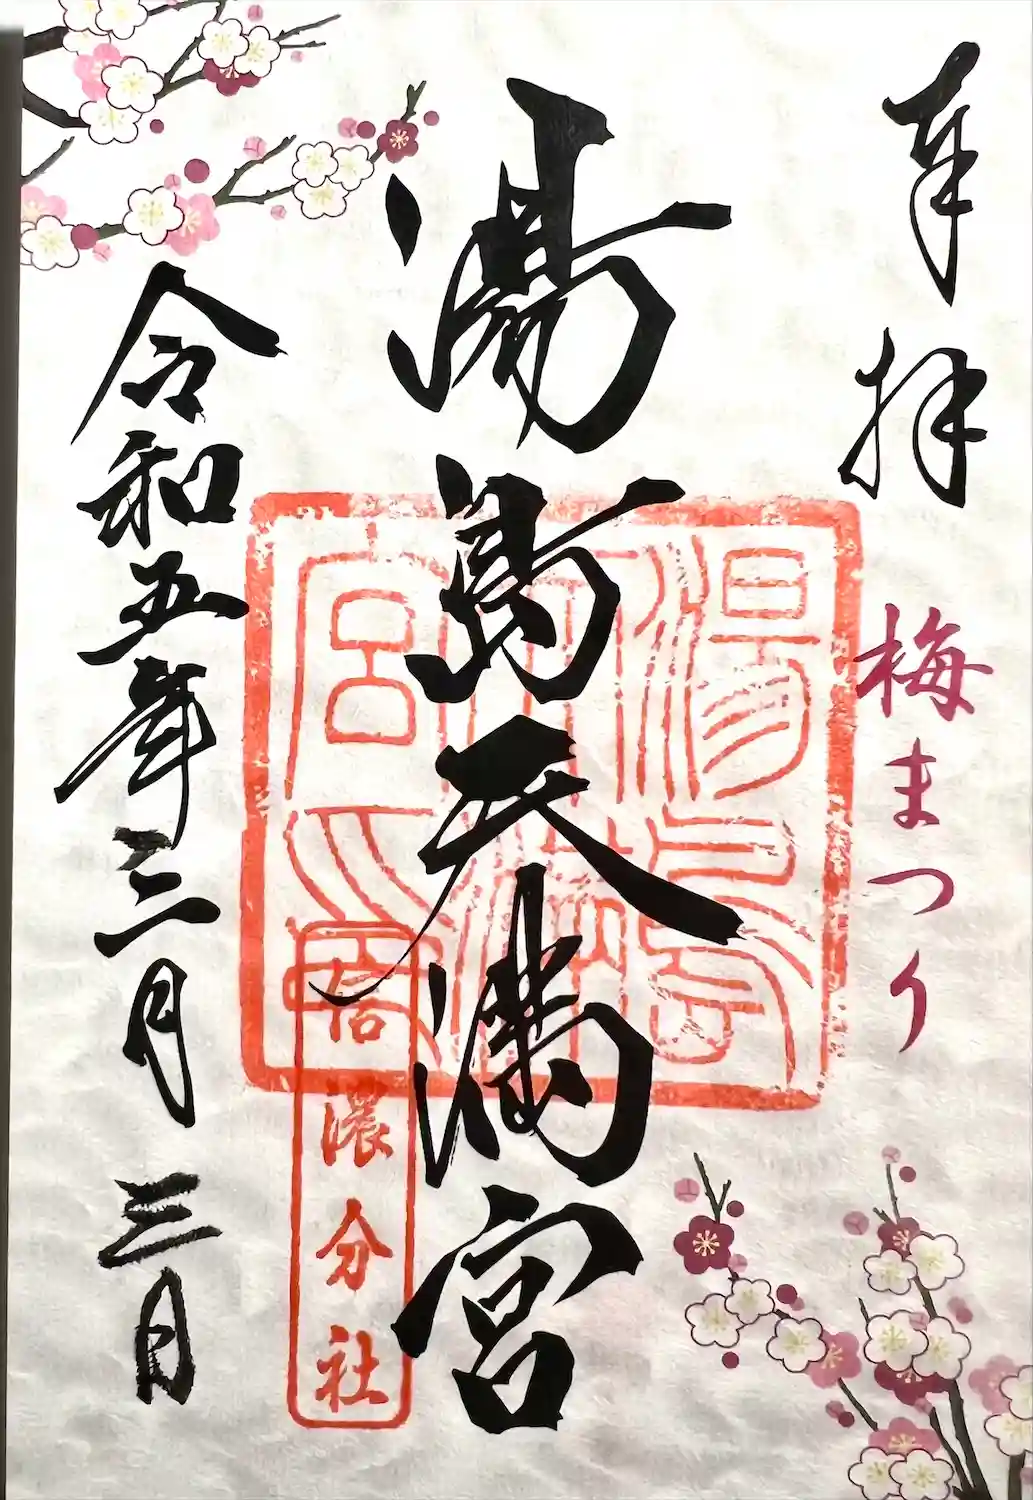 奉拝
梅まつり
湯島天満宮
湯島天満宮印
信濃分社
令和五年三月三日